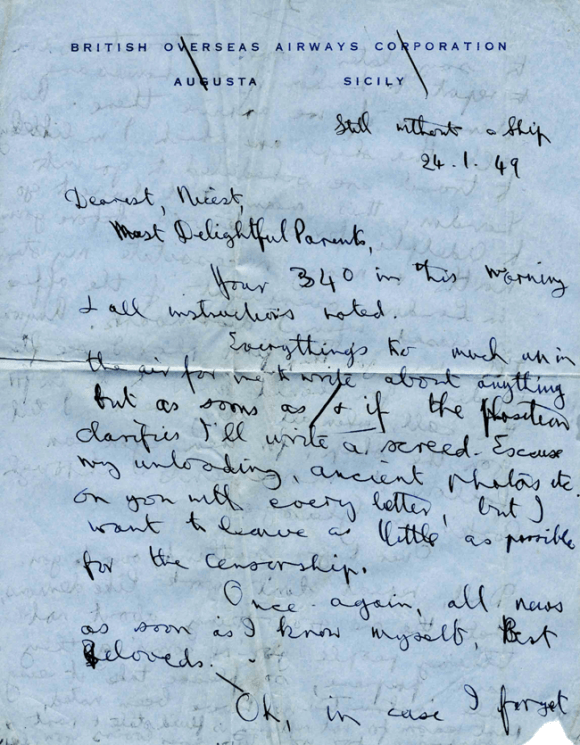 BRITISH OVERSEAS AIRWAYS CORPORATION
AUGUSTA SICILY
Still without a Ship
24.1.49
Dearest, Nicest,
Most Delightful Parents,
Your 340 in this morning
& all instructions noted.
Everythings too much up in
the air for me to write about anything
but as soon as & if the position
clarifies I'll write a screed. Excuse
my unloading, ancient photos etc.
on you with every letter, but I
want to leave as little as possible
for the censorship.
Once again, all news
as soon as I know myself, Best
Beloveds.
Oh, in case I forget